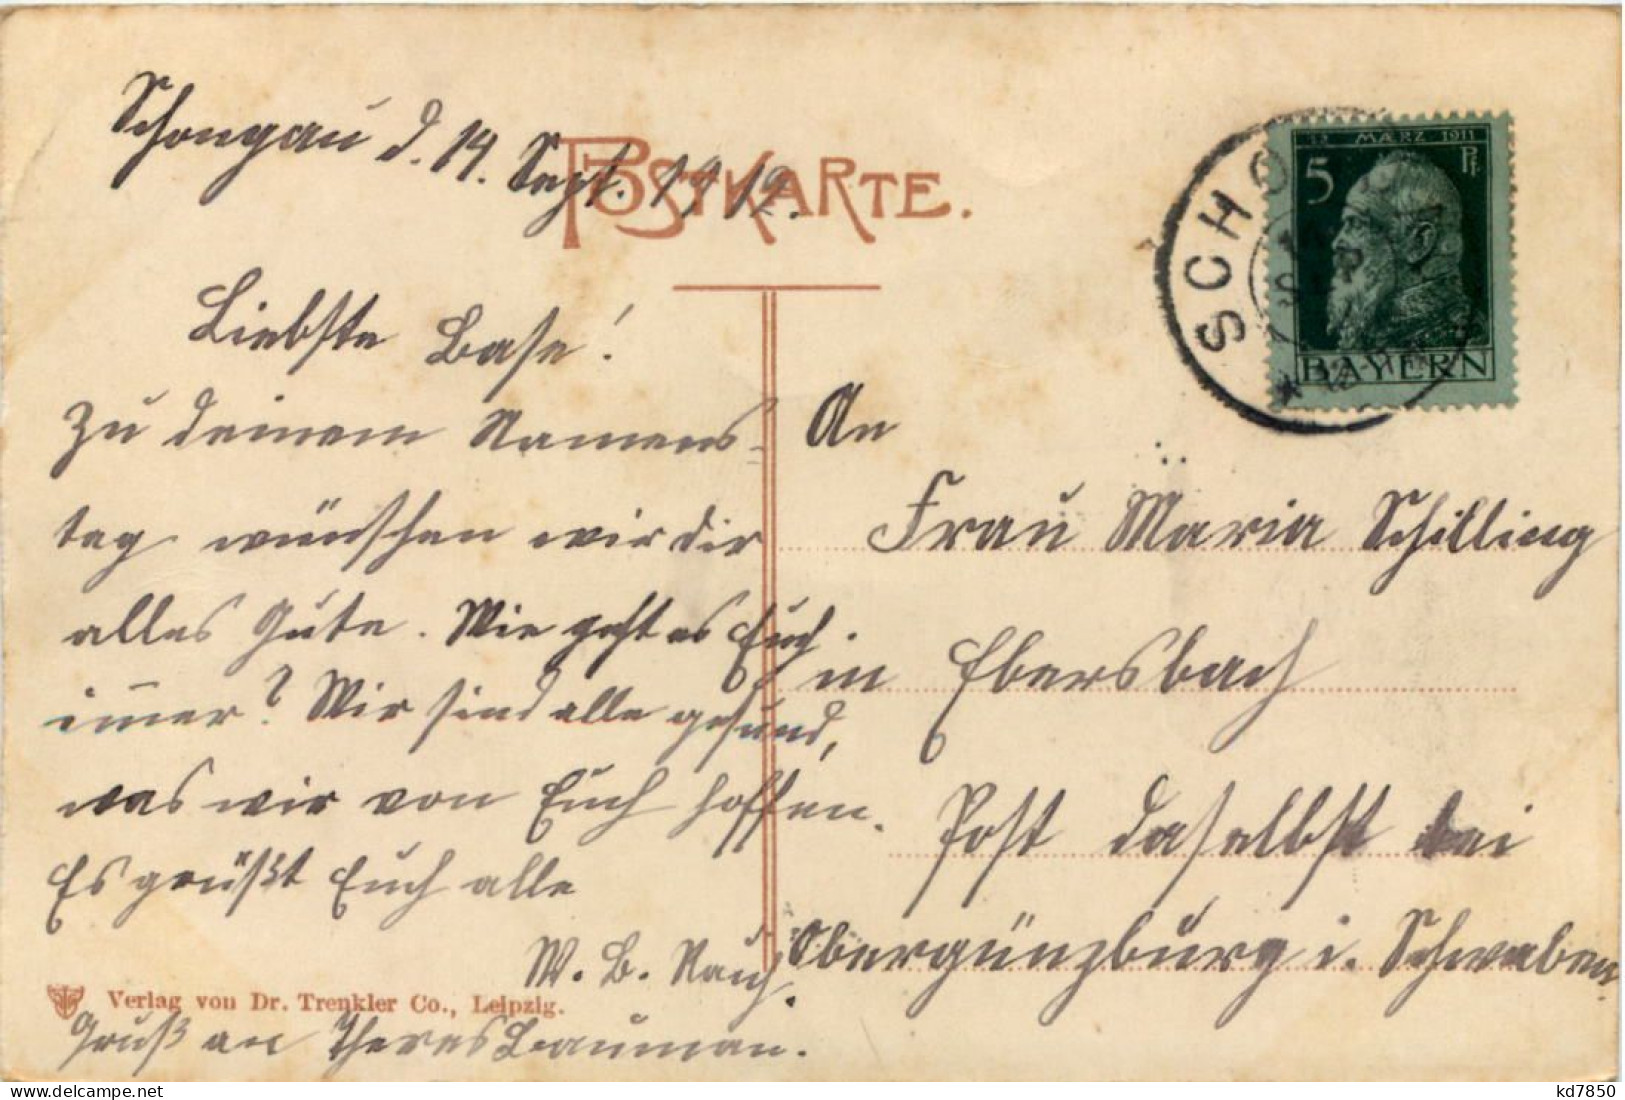 Schongau d. 14. Sept. 1912.
POSTKARTE.
Liebste Base!
Zu deinem Namens-
tag wünschen wir dir
alles Gute. Wie geht es Euch
immer? Wir sind alle gesund,
was wir von Euch hoffen.
Es grüßt Euch alle
W. B. Rauch.
Gruß an Theres Bauman.
Verlag von Dr. Trenkler Co., Leipzig.
12 MÆRZ 1911
5 Pf
BAYERN
SCHO
An
Frau Maria Schilling
in Ebersbach
Post daselbst bei
Obergünzburg i. Schwaben
kd7850